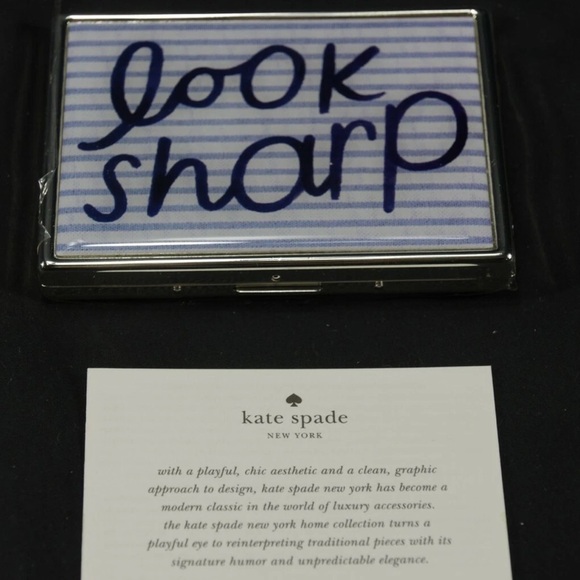 look
sharp
kate spade
NEW YORK
with a playful, chic aesthetic and a clean, graphic
approach to design, kate spade new york has become a
modern classic in the world of luxury accessories.
the kate spade new york home collection turns a
playful eye to reinterpreting traditional pieces with its
signature humor and unpredictable elegance.